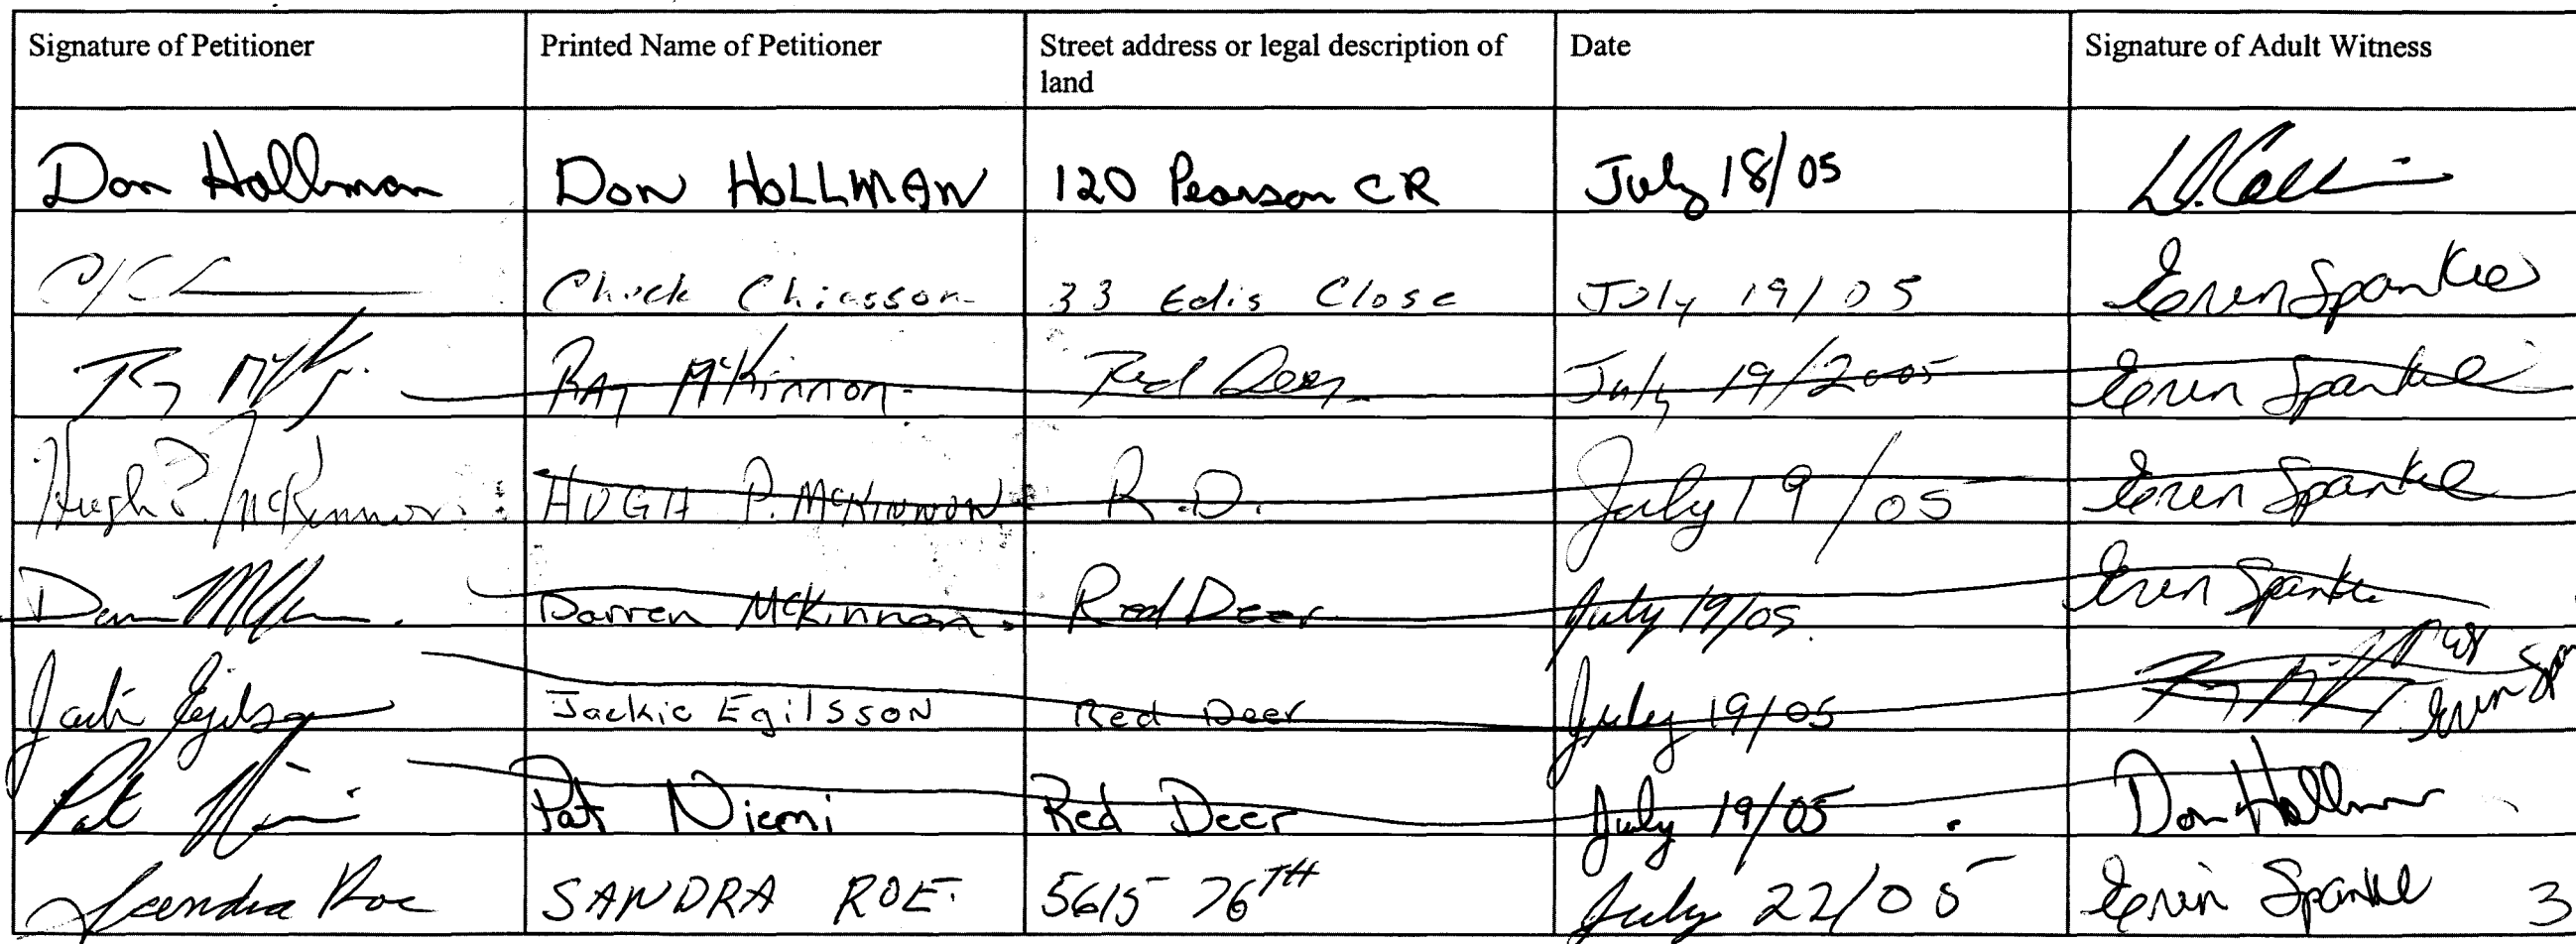 Signature of Petitioner Printed Name of Petitioner Street address or legal description of land Date Signature of Adult Witness
Don Hollman DON HOLLMAN 120 Pearson CR July 18/05
Chuck Chiasson 33 Edis Close July 19/05 Eren Spankie
Ray McKinnon Red Deer July 19/2005 Eren Spankie
Hugh P. McKinnon HUGH P. McKINNON R.D. July 19/05 Eren Spankie
Darren McKinnon Red Deer July 19/05 Eren Spankie
Jackie Egilsson Jackie Egilsson Red Deer July 19/05
Pat Niemi Pat Niemi Red Deer July 19/05 Don Hollman
Sandra Roe SANDRA ROE 5615 76TH July 22/05 Eren Spankie 3